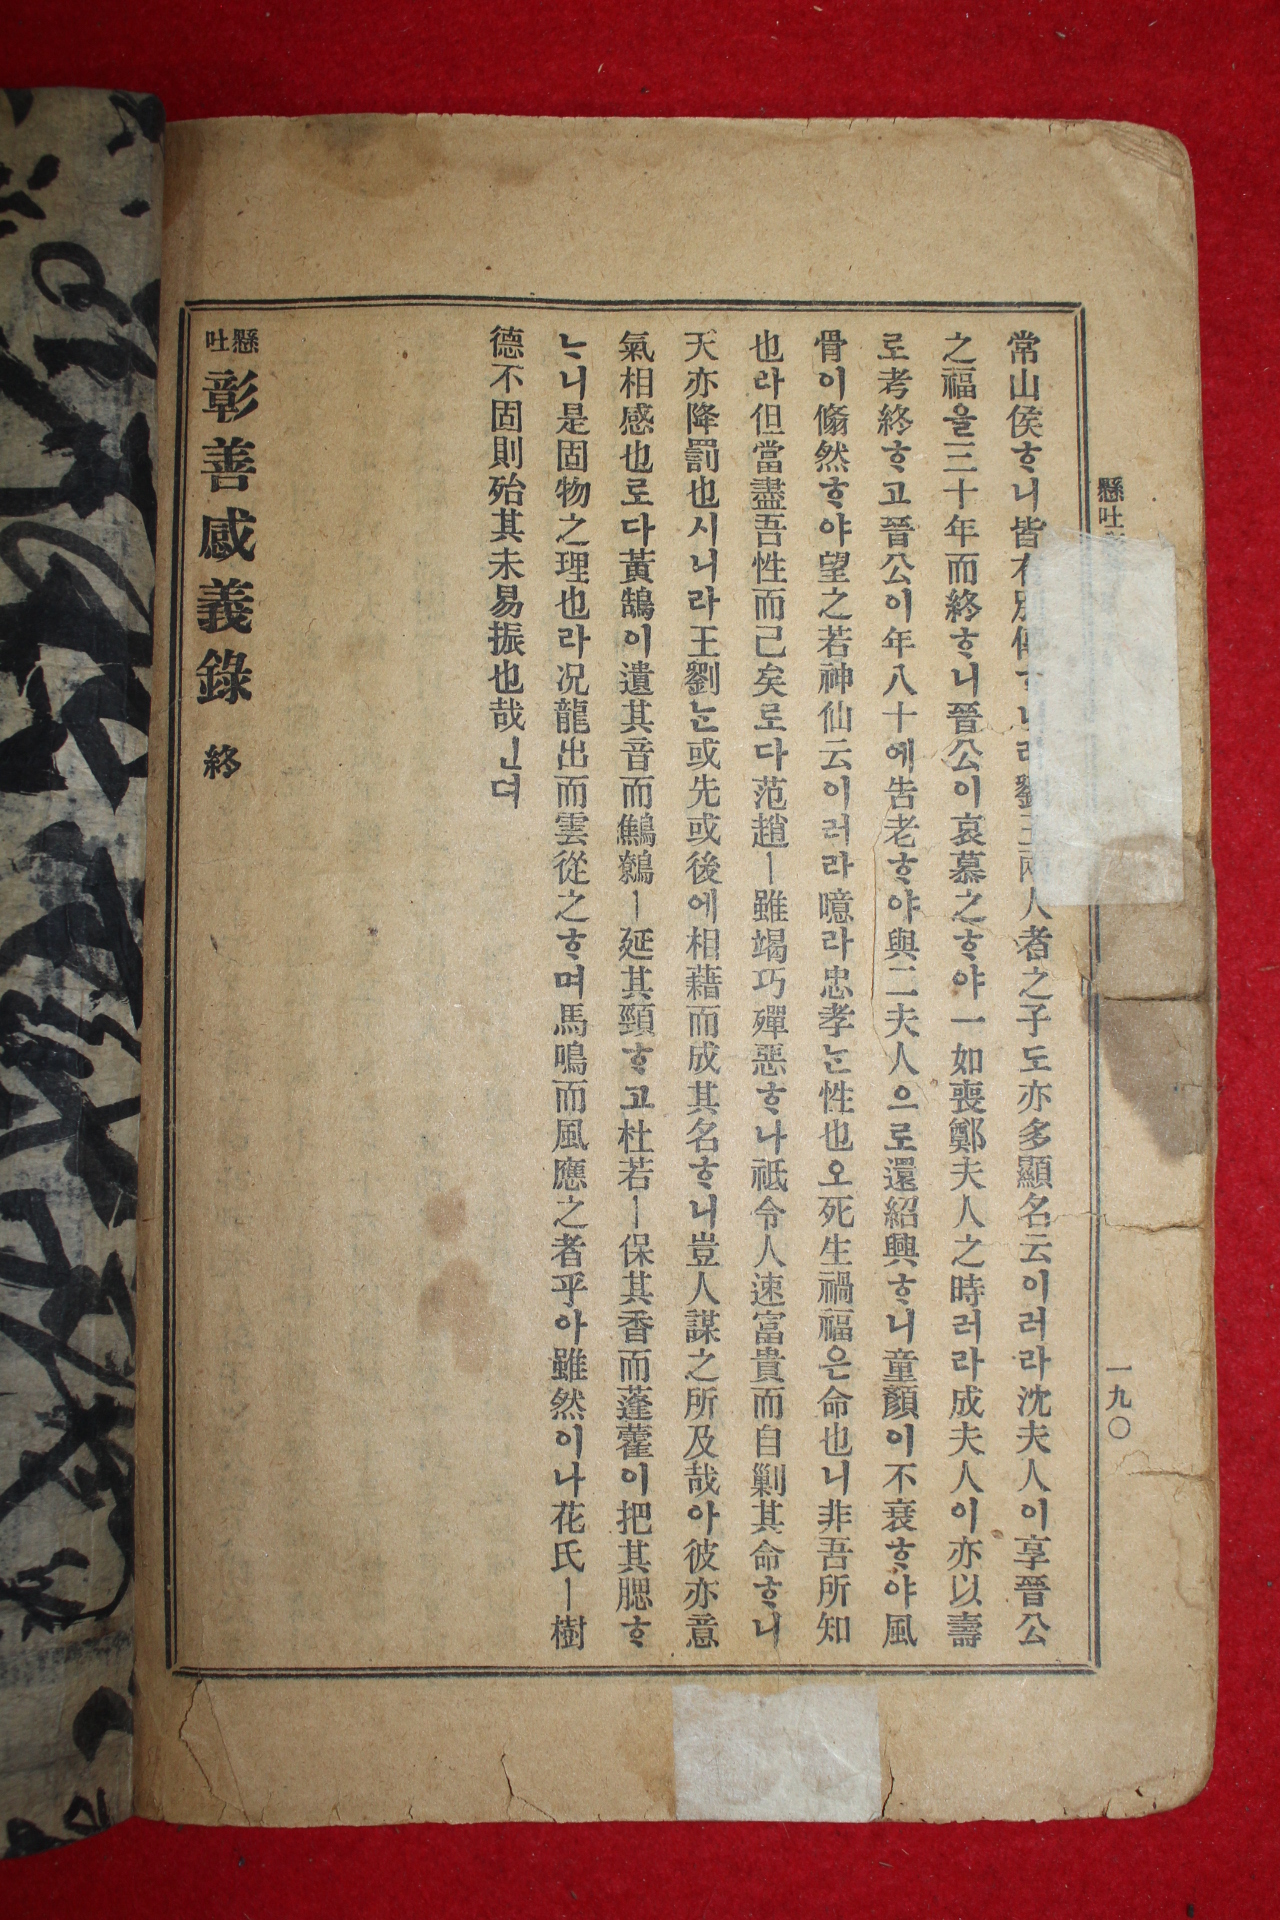 懸吐
一九〇
常山侯ᄒᆞ니皆有別傳ᄒᆞ니라劉王兩人者之子도亦多顯名云이러라沈夫人이享晉公
之福을三十年而終ᄒᆞ니晉公이哀慕之ᄒᆞ야一如喪鄭夫人之時러라成夫人이亦以壽
로考終ᄒᆞ고晉公이年八十에告老ᄒᆞ야與二夫人으로還紹興ᄒᆞ니童顏이不衰ᄒᆞ야風
骨이翛然ᄒᆞ야望之若神仙云이러라噫라忠孝ᄂᆞᆫ性也오死生禍福은命也니非吾所知
也라但當盡吾性而已矣로다范趙ㅣ雖竭巧殫惡ᄒᆞ나祗令人速富貴而自剿其命ᄒᆞ니
天亦降罰也시니라王劉ᄂᆞᆫ或先或後에相藉而成其名ᄒᆞ니豈人謀之所及哉아彼亦意
氣相感也로다黃鵠이遺其音而鷦鷯ㅣ延其頸ᄒᆞ고杜若ㅣ保其香而蓬藿이把其腮ᄒᆞ
ᄂᆞ니是固物之理也라况龍出而雲從之ᄒᆞ며馬鳴而風應之者乎아雖然이나花氏ㅣ樹
德不固則殆其未易振也哉ᅟᅵᆫ뎌
懸吐彰善感義錄 終